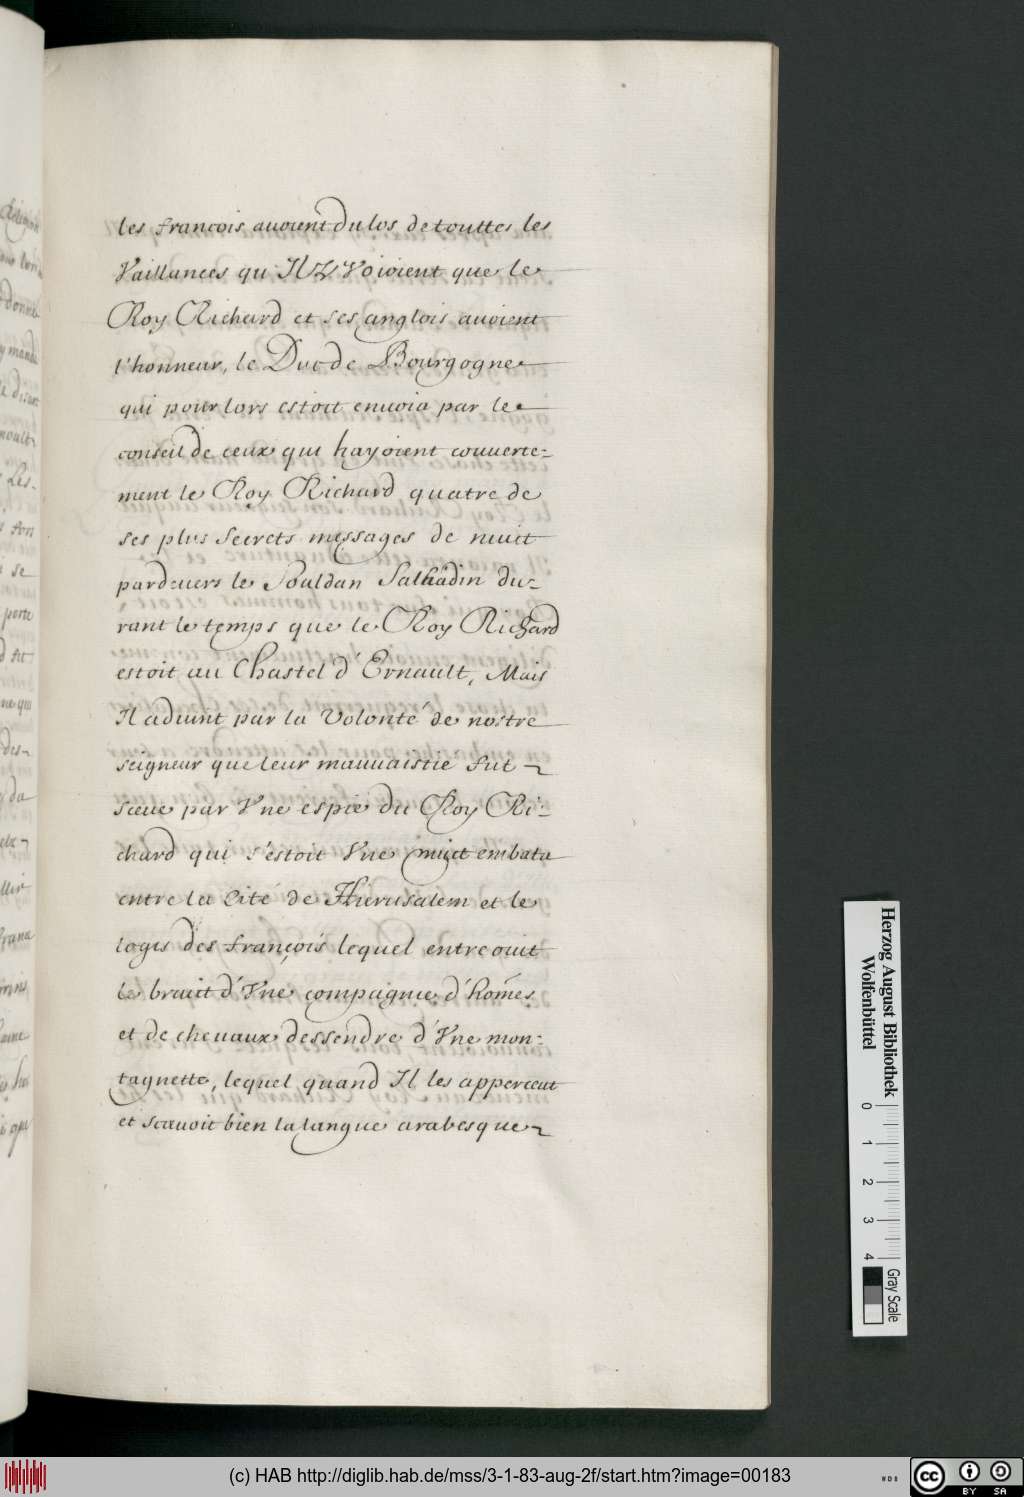 les francois avoient du los de touttes les
Vaillances qu'Ilz Voioient que le
Roy Richard et ses anglois avoient
l'honneur, le Duc de Bourgogne
qui pour lors estoit envoia par le
conseil de ceux qui hayoient couverte-
ment le Roy Richard quatre de
ses plus secrets messages de nuit
pardevers le Souldan Salhadin du-
rant le temps que le Roy Richard
estoit au Chastel d'Ernault, Mais
Il aduint par la Volonté de nostre
seigneur que leur mauvaistie fut
sceue par Vne espie du Roy Ri-
chard qui s'estoit Vne nuict embatu
entre la Cité de Hierusalem et le
logis des françois lequel entreouit
le bruict d'Vne compagnie d'homes
et de chevaux dessendre d'Vne mon-
tagnette, lequel quand Il les apperceut
et scauoit bien la langue arabesque
Herzog August Bibliothek
Wolfenbüttel
0 1 2 3 4
Gray Scale
(c) HAB http://diglib.hab.de/mss/3-1-83-aug-2f/start.htm?image=00183
cc BY SA